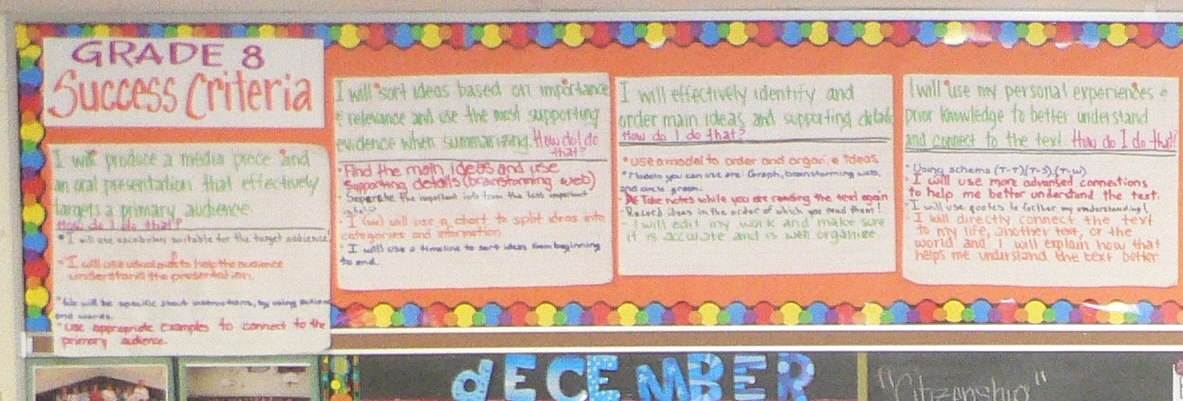 GRADE 8
Success Criteria
I will produce a media piece and
an oral presentation that effectively
targets a primary audience.
How do I do that?
* I will use vocabulary suitable for the target audience!
* I will use visual to help the audience
understand the presentation.
* We will be specific about instructions, by using actions
and words.
* use appropriate examples to connect to the
primary audience.
I will sort ideas based on importance
& relevance and use the most supporting
evidence when summarizing. How do I do
that?
* Find the main ideas and use
supporting details (brainstorming web)
* Seperate the important info from the less important
* I (we) will use a chart to split ideas into
categories and information
* I will use a timeline to sort ideas from beginning
to end.
I will effectively identify and
order main ideas, and supporting details
How do I do that?
* use a model to order and organize ideas.
* Models you can use are: Graph, brainstorming web,
and circle graph.
* Take notes while you are reading the text again
* Record ideas in the order of which you read them!
- I will edit my work and make sure
it is accurate and is well organize
I will use my personal experiences &
prior knowledge to better understand
and connect to the text! How do I do that?
* Using schema (T-T)(T-S)(T-W)
* I will use more advanced connections
to help me better understand the text.
* I will use quotes to further my understanding!
* I will directly connect the text
to my life, another text, or the
world and I will explain how that
helps me understand the text better
dECEMBER
"Citizenship"